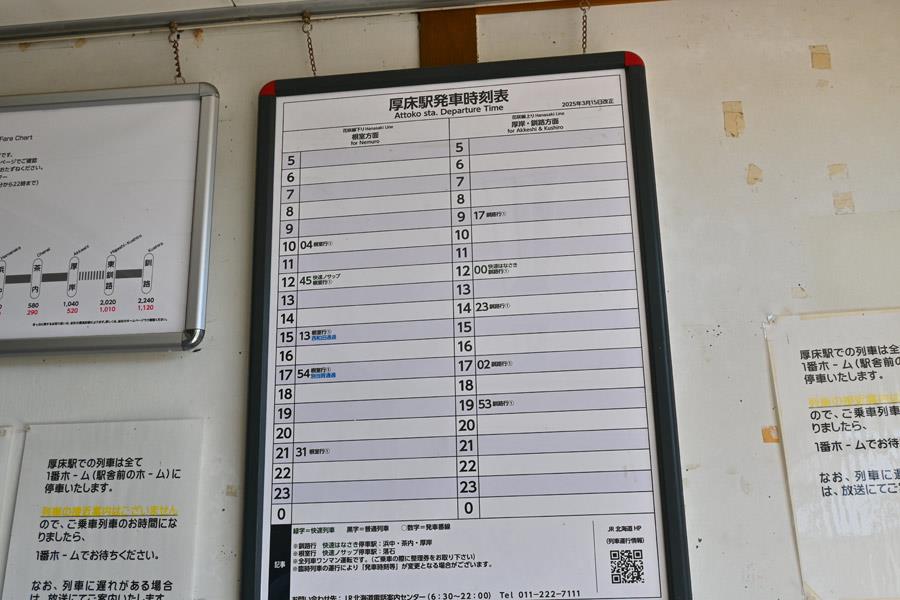 厚床駅発車時刻表
Attoko sta. Departure Time
2025年3月15日改正
花咲線下り Hanasaki Line
根室方面
for Nemuro
花咲線上り Hanasaki Line
厚岸・釧路方面
for Akkeshi & Kushiro
5
6
7
8
9
10 04 根室行①
11
12 45 快速ノサップ
根室行①
13
14
15 13 根室行①
西和田通過
16
17 54 根室行①
別当賀通過
18
19
20
21 31 根室行①
22
23
0
5
6
7
8
9 17 釧路行①
10
11
12 00 快速はなさき
釧路行①
13
14 23 釧路行①
15
16
17 02 釧路行①
18
19 53 釧路行①
20
21
22
23
0
記事
緑字=快速列車 黒字=普通列車 ○数字=発車番線
※釧路行 快速はなさき停車駅:浜中・茶内・厚岸
※根室行 快速ノサップ停車駅:落石
※全列車ワンマン運転です。(ご乗車の際に整理券をお取り下さい)
※臨時列車の運行により「発車時刻等」が変更となる場合がございます。
お問い合わせ先:JR北海道電話案内センター(6:30~22:00) Tel 011-222-7111
JR 北海道 HP
(列車運行情報)
Fare Chart
です。
ページでご確認
おたずねください。
分から22時まで)
茶内
厚岸
東釧路
釧路
580 1,040 2,020 2,240
290 520 1,010 1,120
厚床駅での列車は全て
1番ホーム(駅舎前のホーム)に
停車いたします。
列車の接近案内はございません
ので、ご乗車列車のお時間にな
りましたら、
1番ホームでお待ちください。
なお、列車に遅れがある場合
は、放送にてご案内いたします
厚床駅での列車は全
1番ホーム(駅舎前の
停車いたします。
ので、ご乗車列車
りましたら、
1番ホームでお待
なお、列車に遅
は、放送にてご